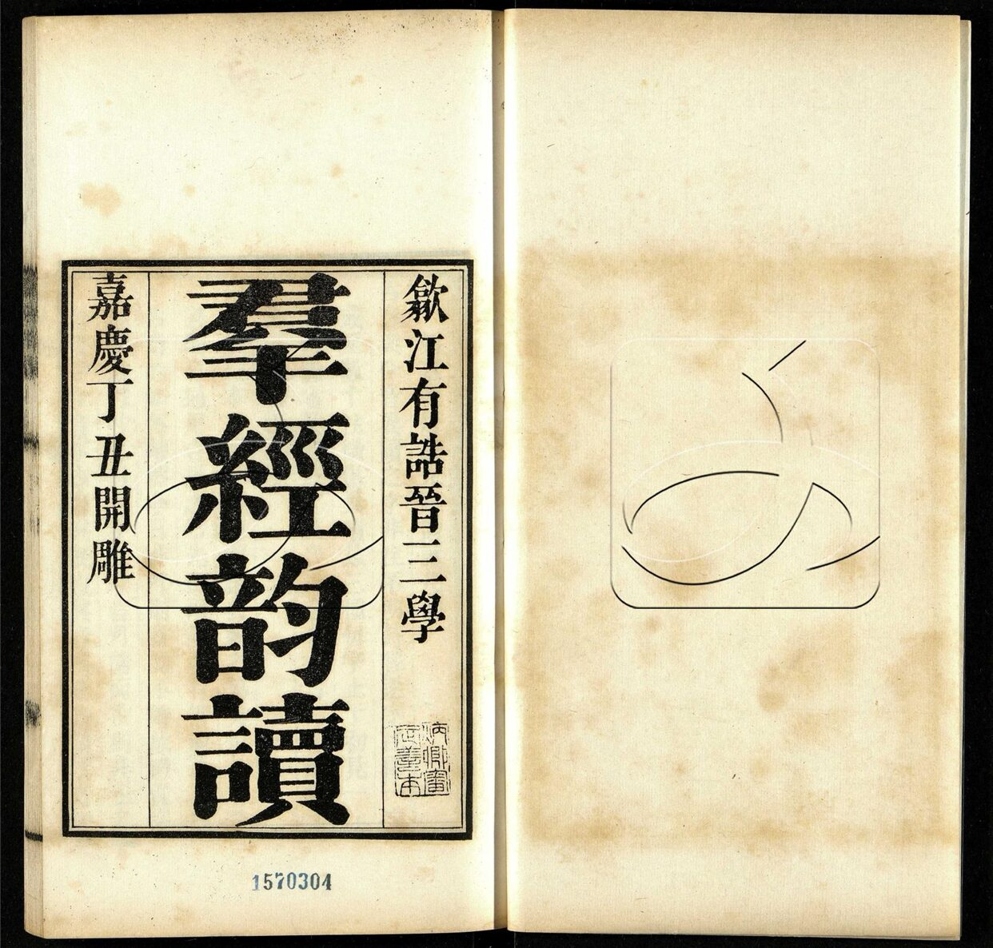 歙江有誥晉三學
羣經韵讀
嘉慶丁丑開雕
1570304